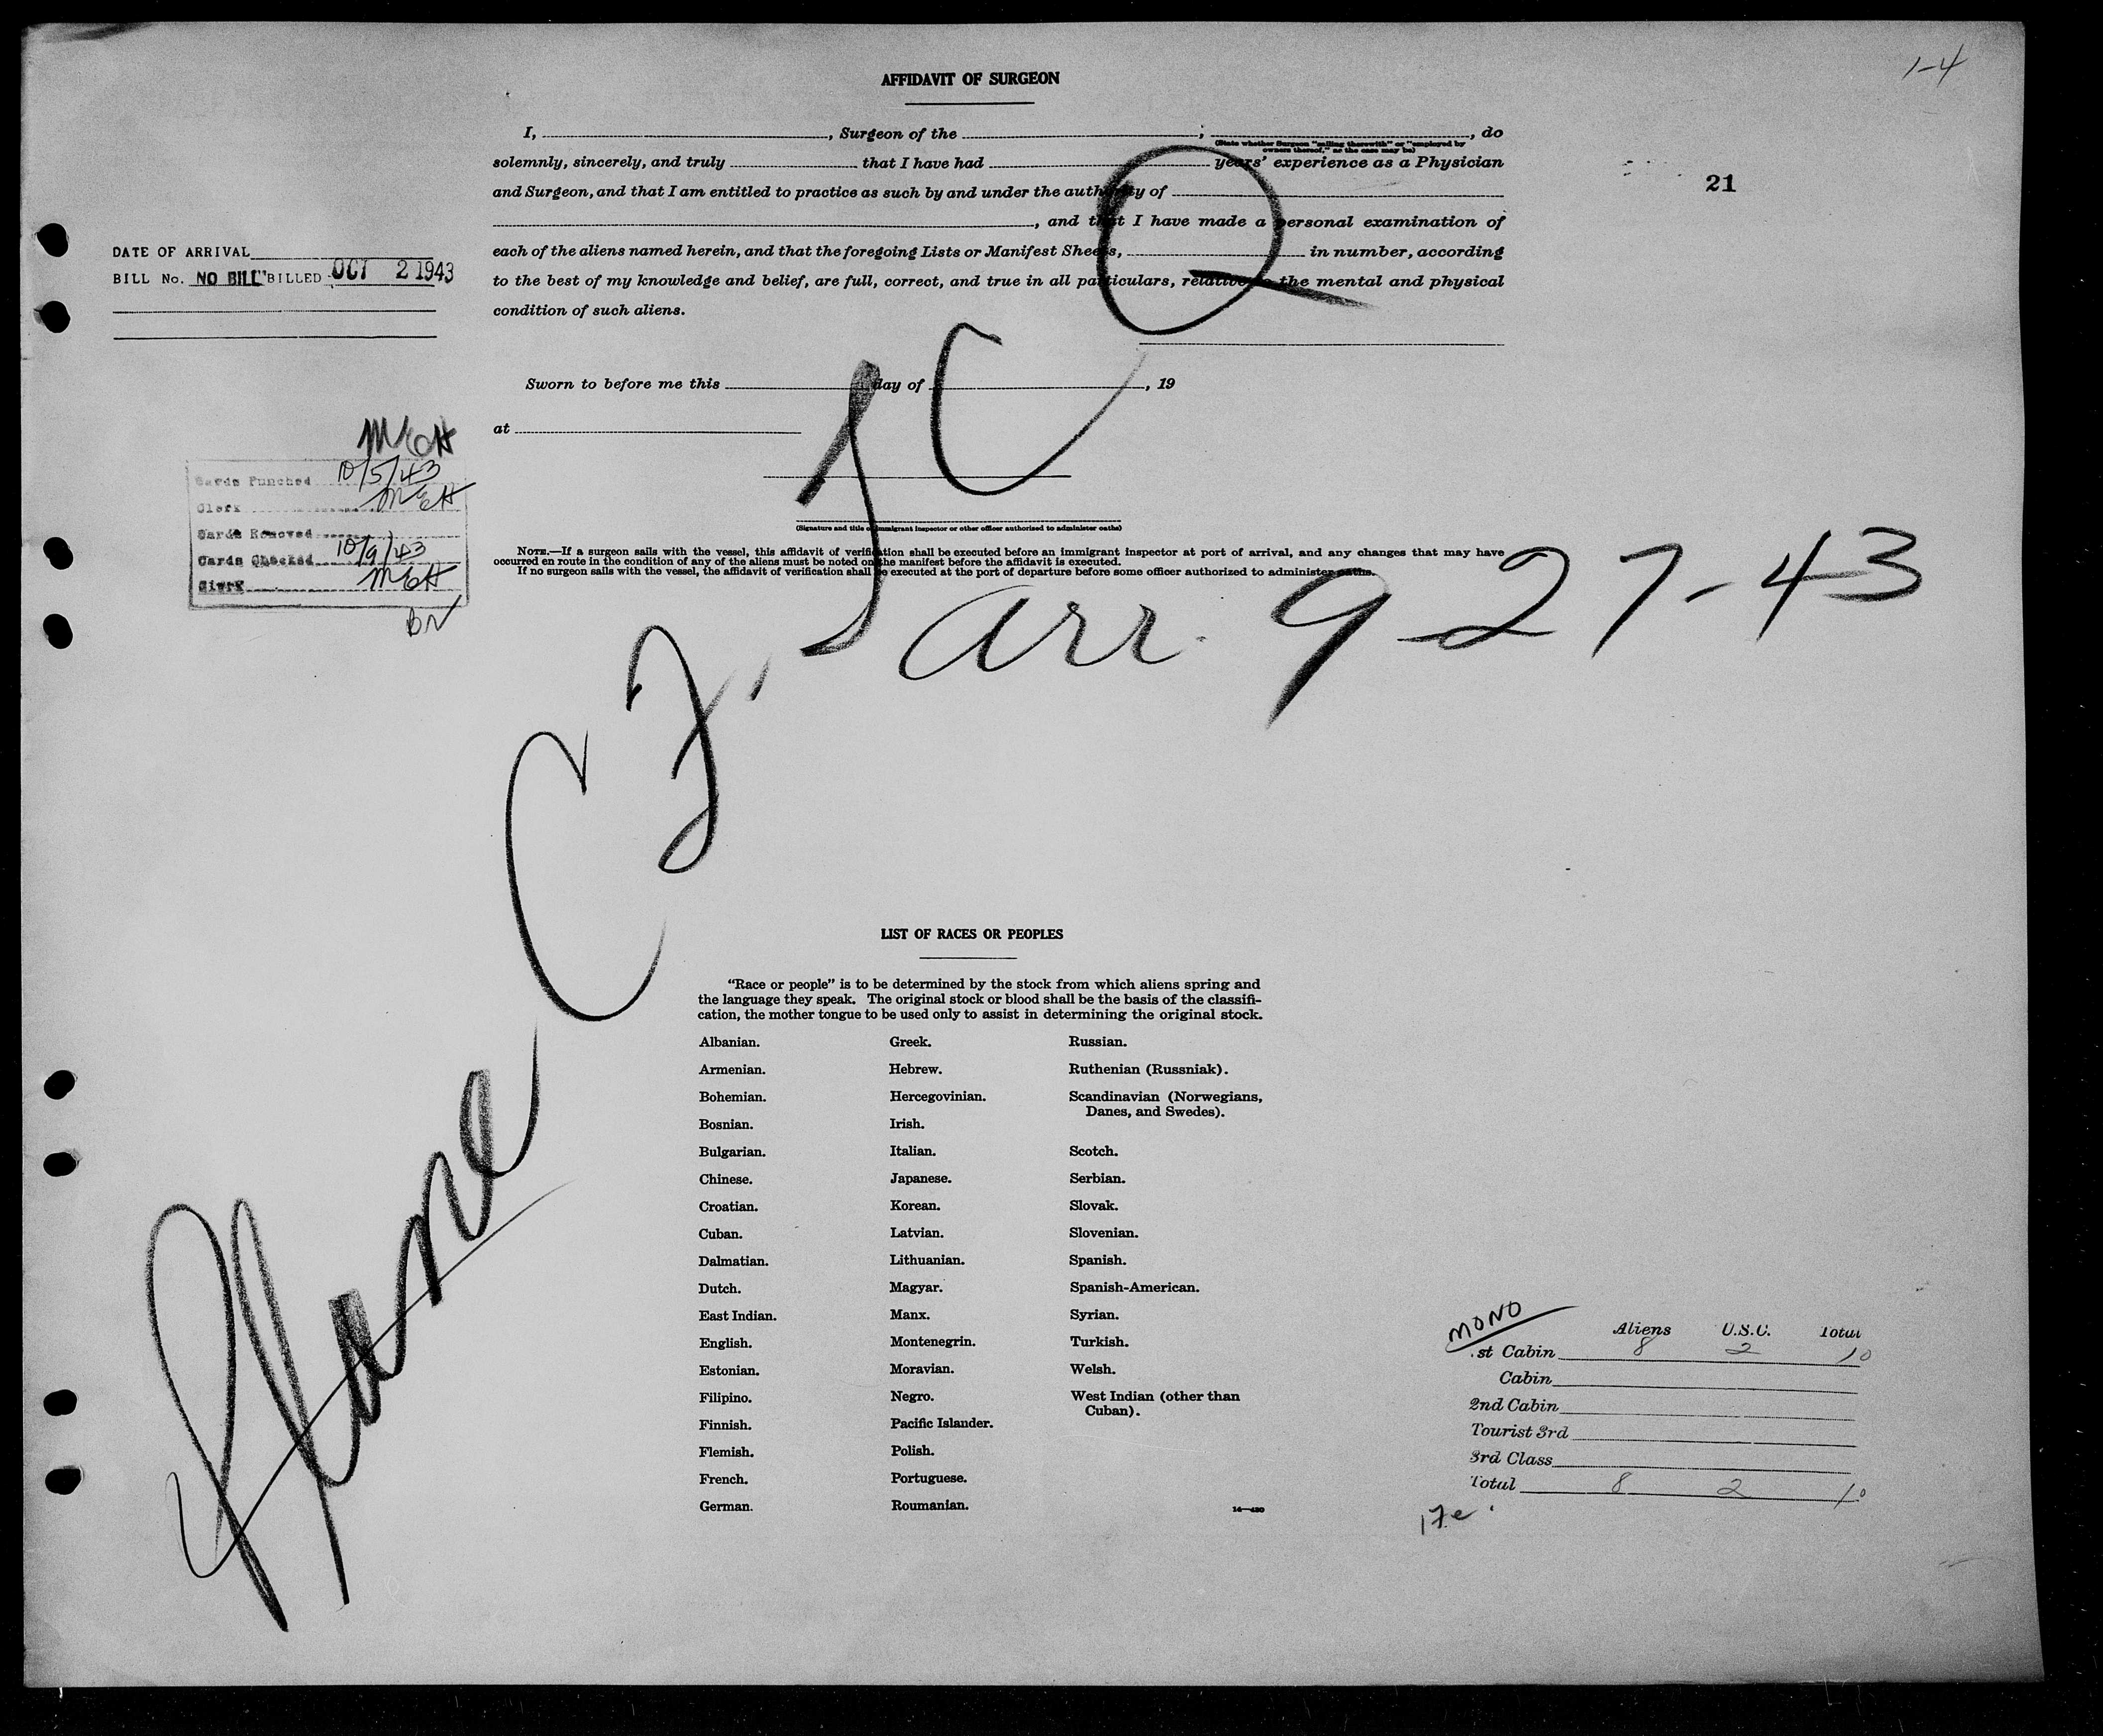 1-4
AFFIDAVIT OF SURGEON
21
I, , Surgeon of the ; , do
(State whether Surgeon "sailing therewith" or "employed by
owners thereof," as the case may be)
solemnly, sincerely, and truly that I have had years' experience as a Physician
and Surgeon, and that I am entitled to practice as such by and under the authority of
, and that I have made a personal examination of
each of the aliens named herein, and that the foregoing Lists or Manifest Sheets, in number, according
to the best of my knowledge and belief, are full, correct, and true in all particulars, relative to the mental and physical
condition of such aliens.
DATE OF ARRIVAL
BILL No. NO BILL BILLED OCT 2 1943
Sworn to before me this day of , 19
at
(Signature and title of immigrant inspector or other officer authorized to administer oaths)
NOTE.—If a surgeon sails with the vessel, this affidavit of verification shall be executed before an immigrant inspector at port of arrival, and any changes that may have
occurred en route in the condition of any of the aliens must be noted on the manifest before the affidavit is executed.
If no surgeon sails with the vessel, the affidavit of verification shall be executed at the port of departure before some officer authorized to administer oaths.
MEH
Cards Punched 10/5/43
Clerk MEH
Cards Removed
Cards Checked 10/9/43
Clerk MEH
Plane
arr. 9-27-43
LIST OF RACES OR PEOPLES
"Race or people" is to be determined by the stock from which aliens spring and
the language they speak. The original stock or blood shall be the basis of the classifi-
cation, the mother tongue to be used only to assist in determining the original stock.
Albanian.
Armenian.
Bohemian.
Bosnian.
Bulgarian.
Chinese.
Croatian.
Cuban.
Dalmatian.
Dutch.
East Indian.
English.
Estonian.
Filipino.
Finnish.
Flemish.
French.
German.
Greek.
Hebrew.
Hercegovinian.
Irish.
Italian.
Japanese.
Korean.
Latvian.
Lithuanian.
Magyar.
Manx.
Montenegrin.
Moravian.
Negro.
Pacific Islander.
Polish.
Portuguese.
Roumanian.
Russian.
Ruthenian (Russniak).
Scandinavian (Norwegians,
Danes, and Swedes).
Scotch.
Serbian.
Slovak.
Slovenian.
Spanish.
Spanish-American.
Syrian.
Turkish.
Welsh.
West Indian (other than
Cuban).
MONO
Aliens U.S.C. Total
st Cabin 8 2 10
Cabin
2nd Cabin
Tourist 3rd
3rd Class
Total 8 2 10